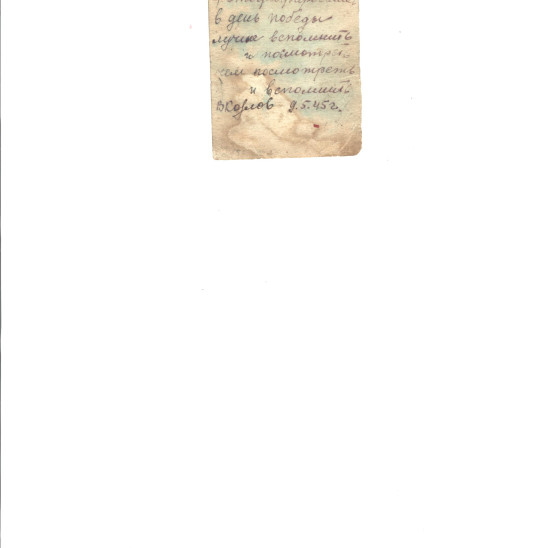 в день победы
лучше вспомнить
и посмотреть
чем посмотреть
и вспомнить
ВКозлов 9.5.45 г.